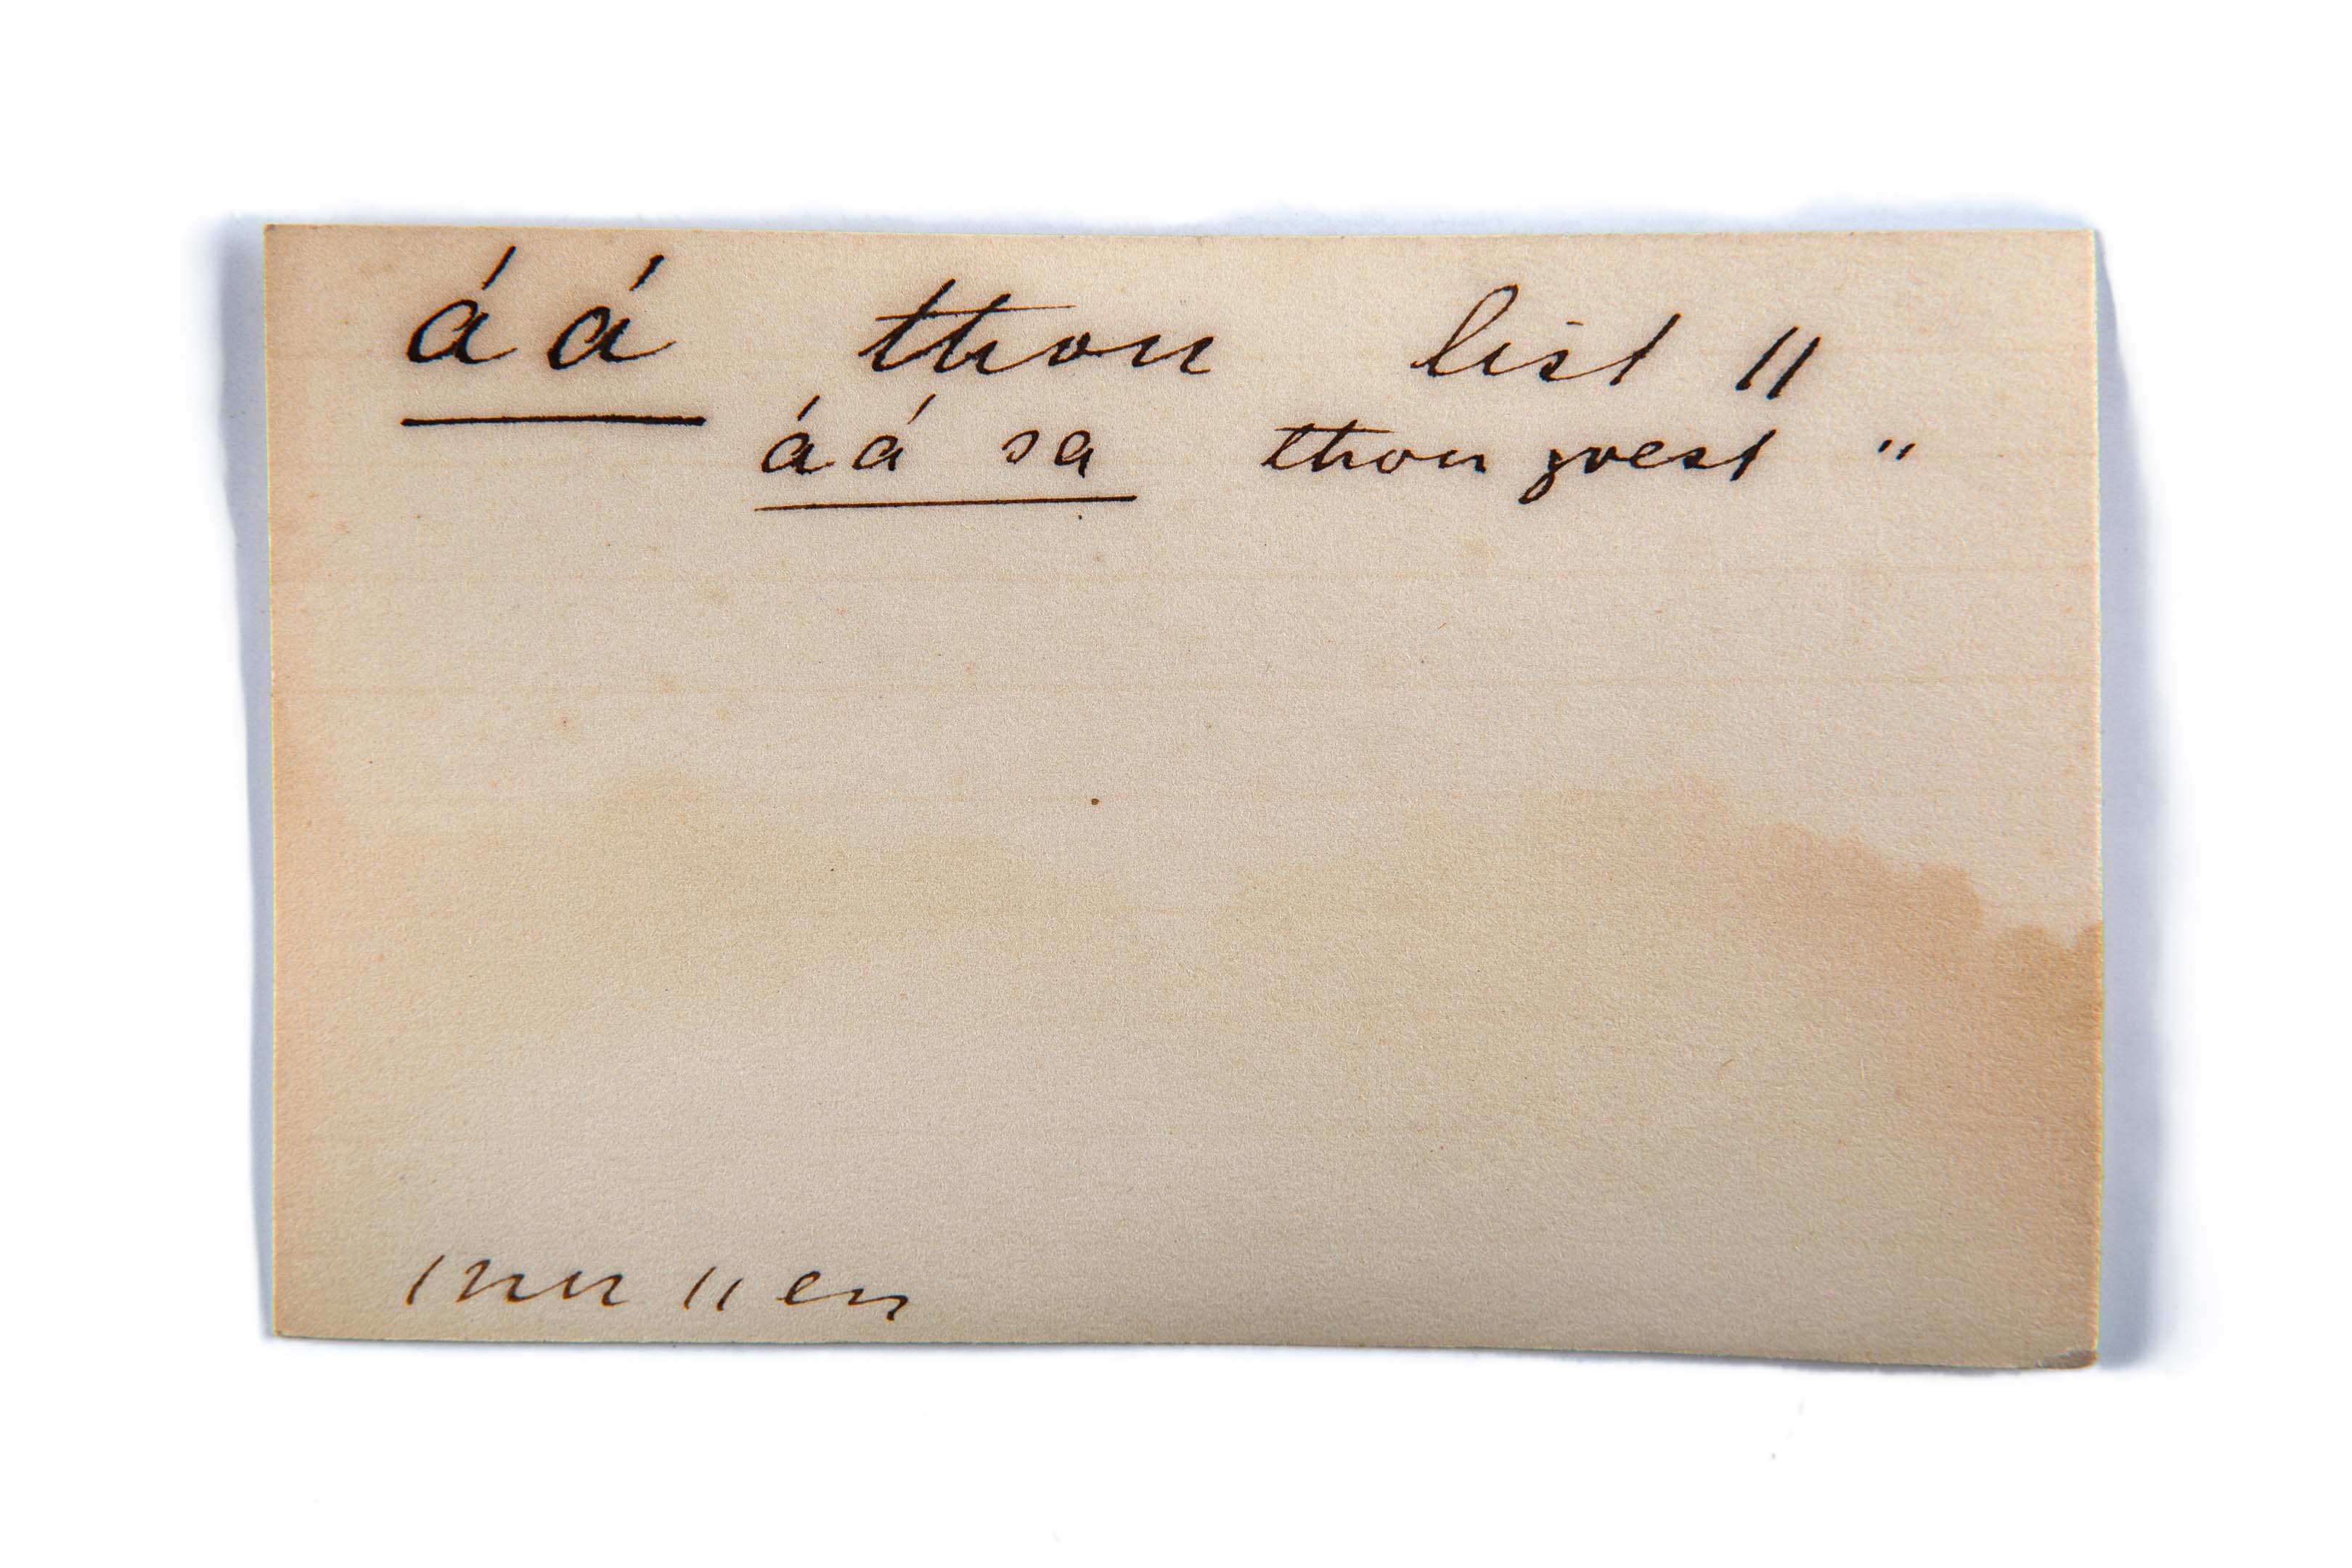 áá thou list 11
áá sa thou goest "